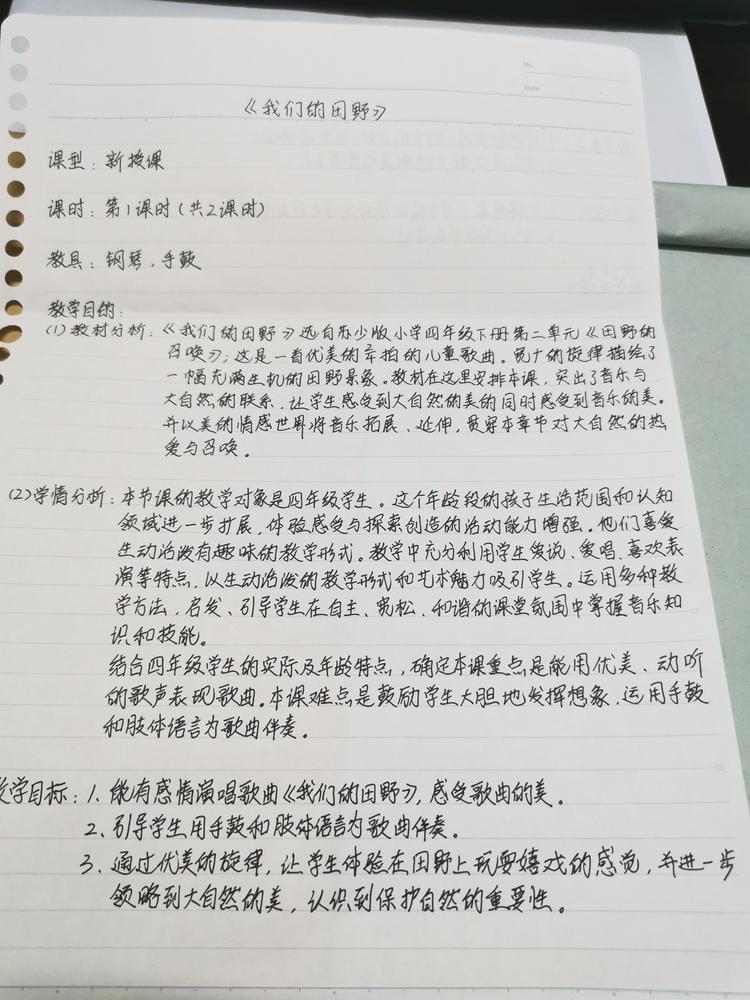 No.
Date
《我们的田野》
课型：新授课
课时：第1课时(共2课时)
教具：钢琴、手鼓
教学目的：
(1)教材分析：《我们的田野》选自苏少版小学四年级下册第二单元《田野的
召唤》；这是一首优美的牵拍的儿童歌曲。宽广的旋律描绘了
一幅充满生机的田野景象。教材在这里安排本课，突出了音乐与
大自然的联系，让学生感受到大自然的美的同时感受到音乐的美。
并以美的情感世界将音乐拓展、延伸，贯穿本章节对大自然的热
爱与召唤。
(2)学情分析：本节课的教学对象是四年级学生。这个年龄段的孩子生活范围和认知
领域进一步扩展，体验感受与探索创造的活动能力增强。他们喜爱
生动活泼有趣味的教学形式。教学中充分利用学生爱说、爱唱、喜欢表
演等特点，以生动活泼的教学形式和艺术魅力吸引学生。运用多种教
学方法，启发、引导学生在自主、宽松、和谐的课堂氛围中掌握音乐知
识和技能。
结合四年级学生的实际及年龄特点，确定本课重点是能用优美、动听
的歌声表现歌曲。本课难点是鼓励学生大胆地发挥想象，运用手鼓
和肢体语言为歌曲伴奏。
教学目标：1.能有感情演唱歌曲《我们的田野》，感受歌曲的美。
2.引导学生用手鼓和肢体语言为歌曲伴奏。
3.通过优美的旋律，让学生体验在田野上玩耍嬉戏的感觉，并进一步
领略到大自然的美，认识到保护自然的重要性。